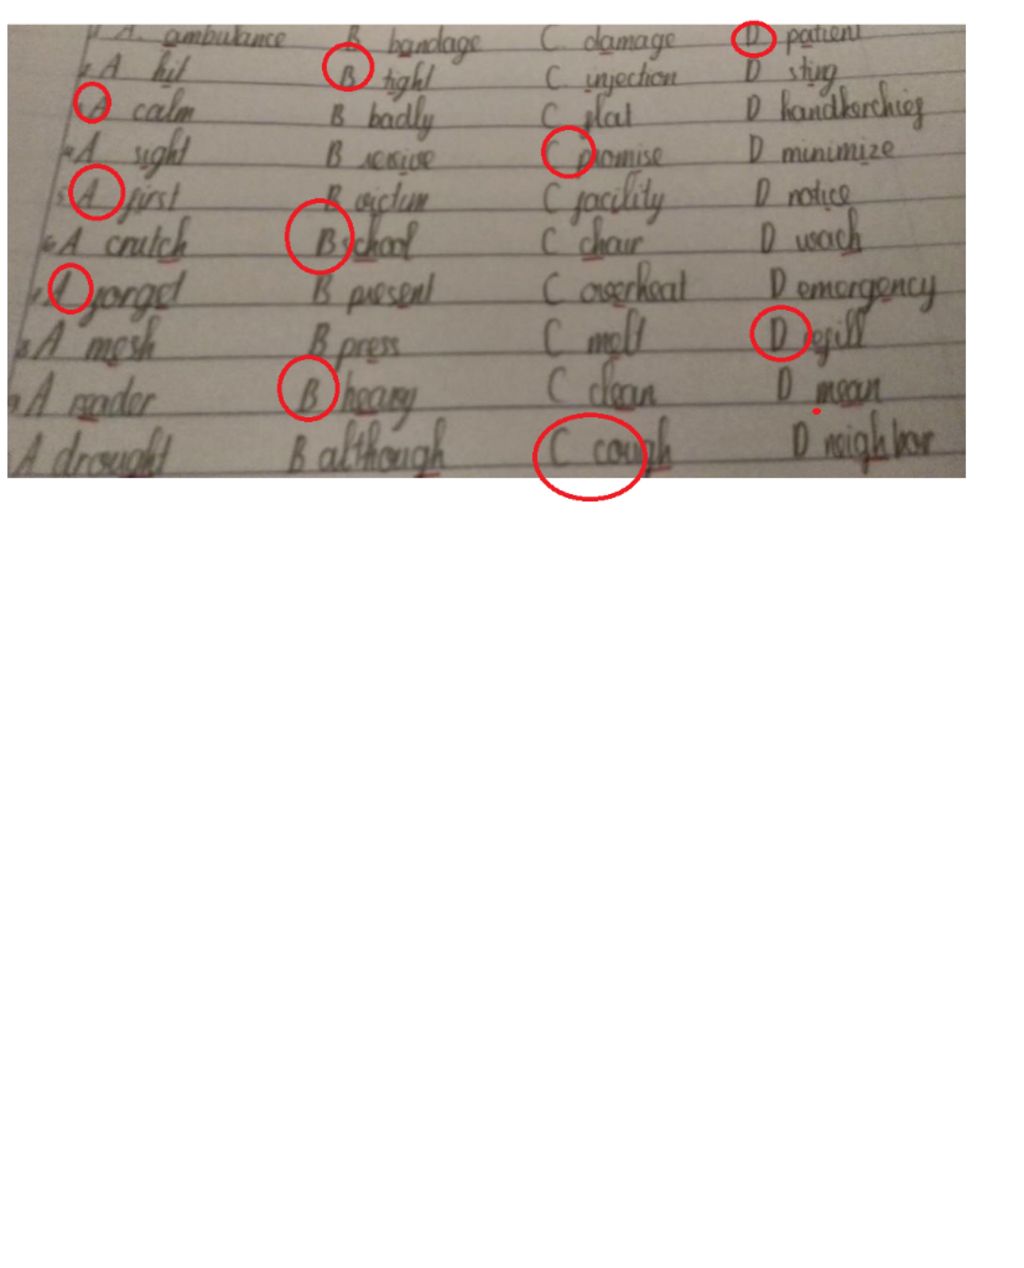 A. ambulance B bandage C. damage D patient
A hit B tight C injection D sting
A calm B badly C flat D handkerchief
A sight B revise C promise D minimize
A first B victim C facility D notice
A crutch B school C chair D
A forget B present C overheat D emergency
A mesh B press C melt D refill
A reader B heavy C clean D mean
A drought B although C cough D neighbor